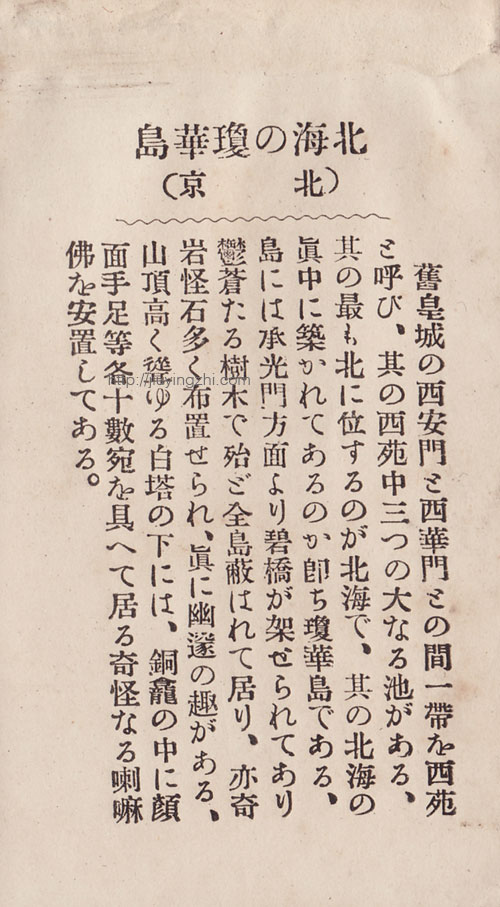 北海の瓊華島
（北京）
舊皇城の西安門と西華門との間一帶を西苑
と呼び、其の西苑中三つの大なる池がある、
其の最も北に位するのが北海で、其の北海の
眞中に築かれてあるのか卽ち瓊華島である、
島には承光門方面より碧橋が架せられてあり
鬱蒼たる樹木で殆ど全島蔽はれて居り、亦奇
岩怪石多く布置せられ、眞に幽邃の趣がある、
山頂高く聳ゆる白塔の下には、銅龕の中に顔
面手足等各十數宛を具へて居る奇怪なる喇嘛
佛を安置してある。